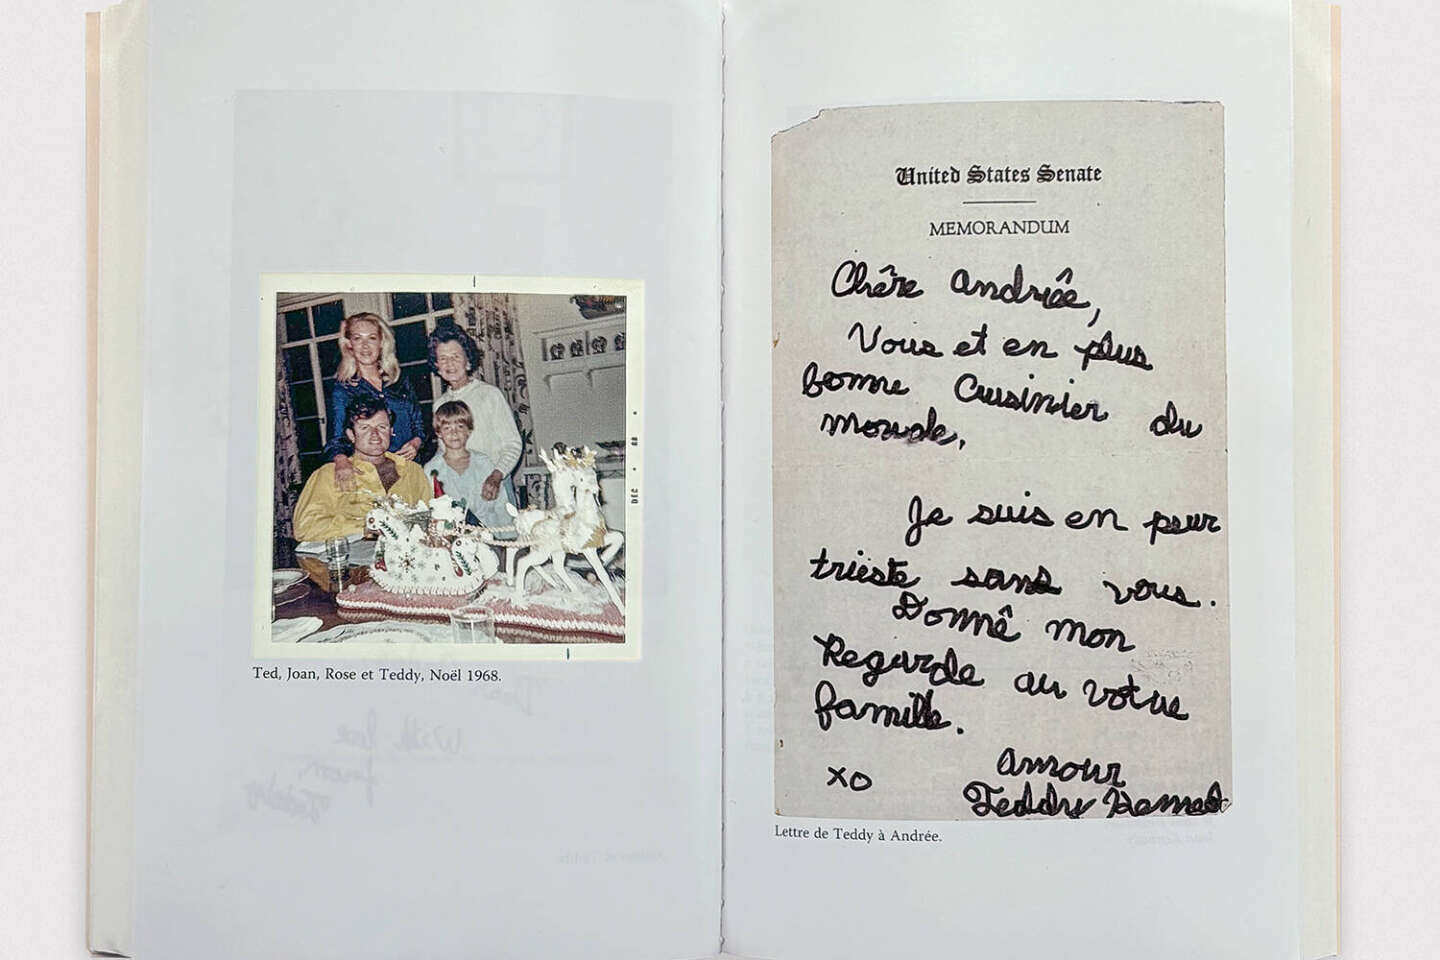 DEC • 68 •
Ted, Joan, Rose et Teddy, Noël 1968.
With love
Teddy
United States Senate
MEMORANDUM
Chêre Andrêe,
Vous et en plus
bonne Cuisinier du
monde.
Je suis en peur
trieste sans vous.
Donnê mon
Regarde au votre
famille.
Amour
XO
Teddy Kennedy
Lettre de Teddy à Andrée.